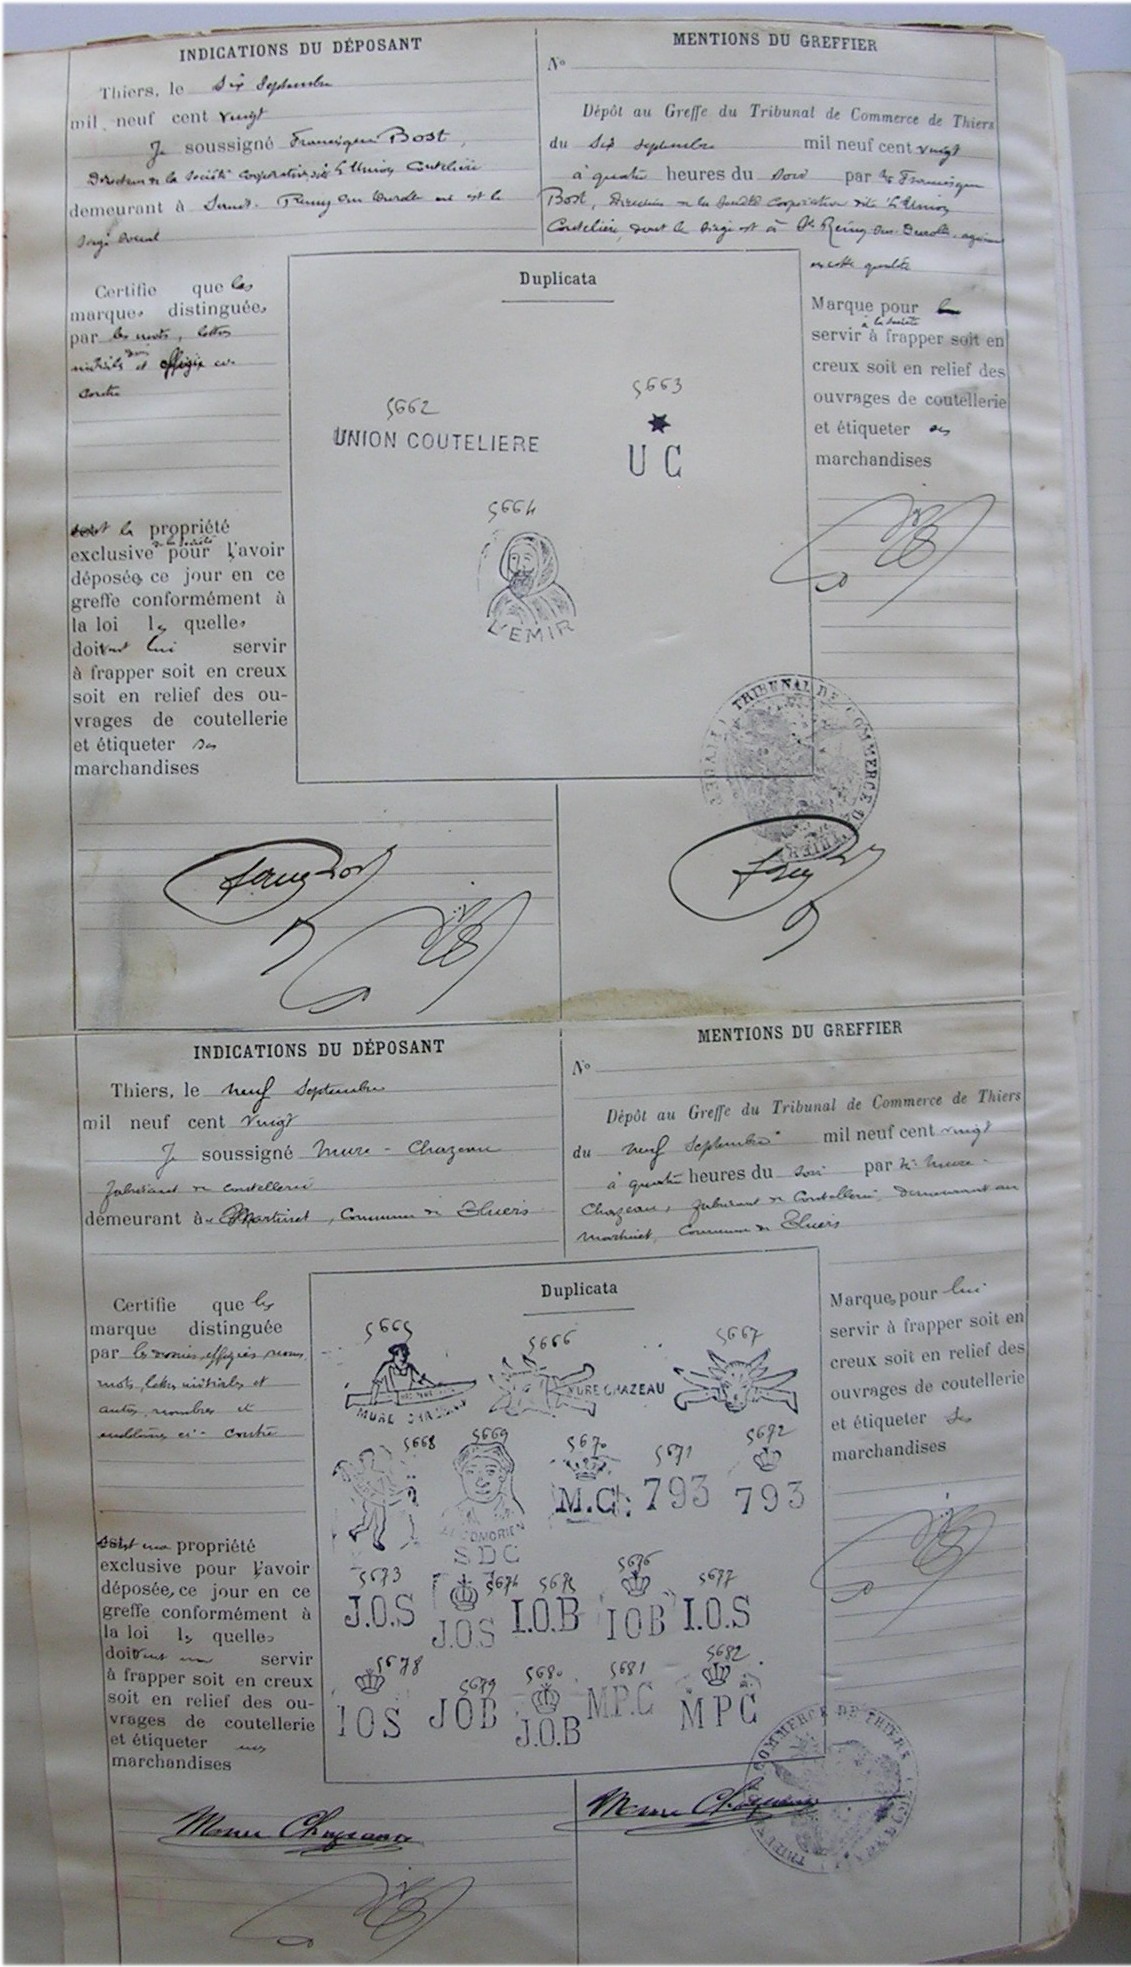 INDICATIONS DU DÉPOSANT
Thiers, le Six Septembre
mil neuf cent vingt
Je soussigné Francisque Bost,
Directeur de la Société Coopérative dite L'Union Coutelière
demeurant à Saint-Remy sur Durolle où est le
siège social
Certifie que les
marques distinguées
par les mots, lettres
initiales et effigie ci-
contre
sont la propriété
exclusive de la société pour l'avoir
déposée ce jour en ce
greffe conformément à
la loi les quelles
doivent lui servir
à frapper soit en creux
soit en relief des ou-
vrages de coutellerie
et étiqueter ses
marchandises
MENTIONS DU GREFFIER
No
Dépôt au Greffe du Tribunal de Commerce de Thiers
du Six septembre mil neuf cent vingt
à quatre heures du soir par Mr Francisque
Bost, Directeur de la Société Coopérative dite L'Union
Coutelière, dont le siège est à St Remy sur Durolle, agissant
en cette qualité
Marque pour
servir à la société à frapper soit en
creux soit en relief des
ouvrages de coutellerie
et étiqueter ses
marchandises
Duplicata
5662
UNION COUTELIERE
5663
U C
5664
L'EMIR
TRIBUNAL DE COMMERCE DE THIERS
INDICATIONS DU DÉPOSANT
Thiers, le neuf Septembre
mil neuf cent vingt
Je soussigné Mure-Chazeau
fabricant de coutellerie
demeurant à Martinet, Commune de Thiers
Certifie que les
marque distinguée
par les noms, effigies,
mots, lettres initiales et
autres, nombres et
emblèmes ci-contre
sont ma propriété
exclusive pour l'avoir
déposée, ce jour en ce
greffe conformément à
la loi les quelles
doivent me servir
à frapper soit en creux
soit en relief des ou-
vrages de coutellerie
et étiqueter mes
marchandises
MENTIONS DU GREFFIER
No
Dépôt au Greffe du Tribunal de Commerce de Thiers
du neuf Septembre mil neuf cent vingt
à quatre heures du soir par Mr Mure-
Chazeau, fabricant de Coutellerie, demeurant au
Martinet, Commune de Thiers
Marques pour lui
servir à frapper soit en
creux soit en relief des
ouvrages de coutellerie
et étiqueter ses
marchandises
Duplicata
5665
MURE CHAZEAU
5666
MURE CHAZEAU
5667
5668
5669
COMORIEN
SDC
5670
M.C.
5671
793
5672
793
5673
J.O.S
5674
J.O.S
5675
I.O.B
5676
IOB
5677
I.O.S
5678
IOS
5679
JOB
5680
J.O.B
5681
MP.C
5682
MPC
COMMERCE DE THIERS
Mure Chazeau
Mure Chazeau